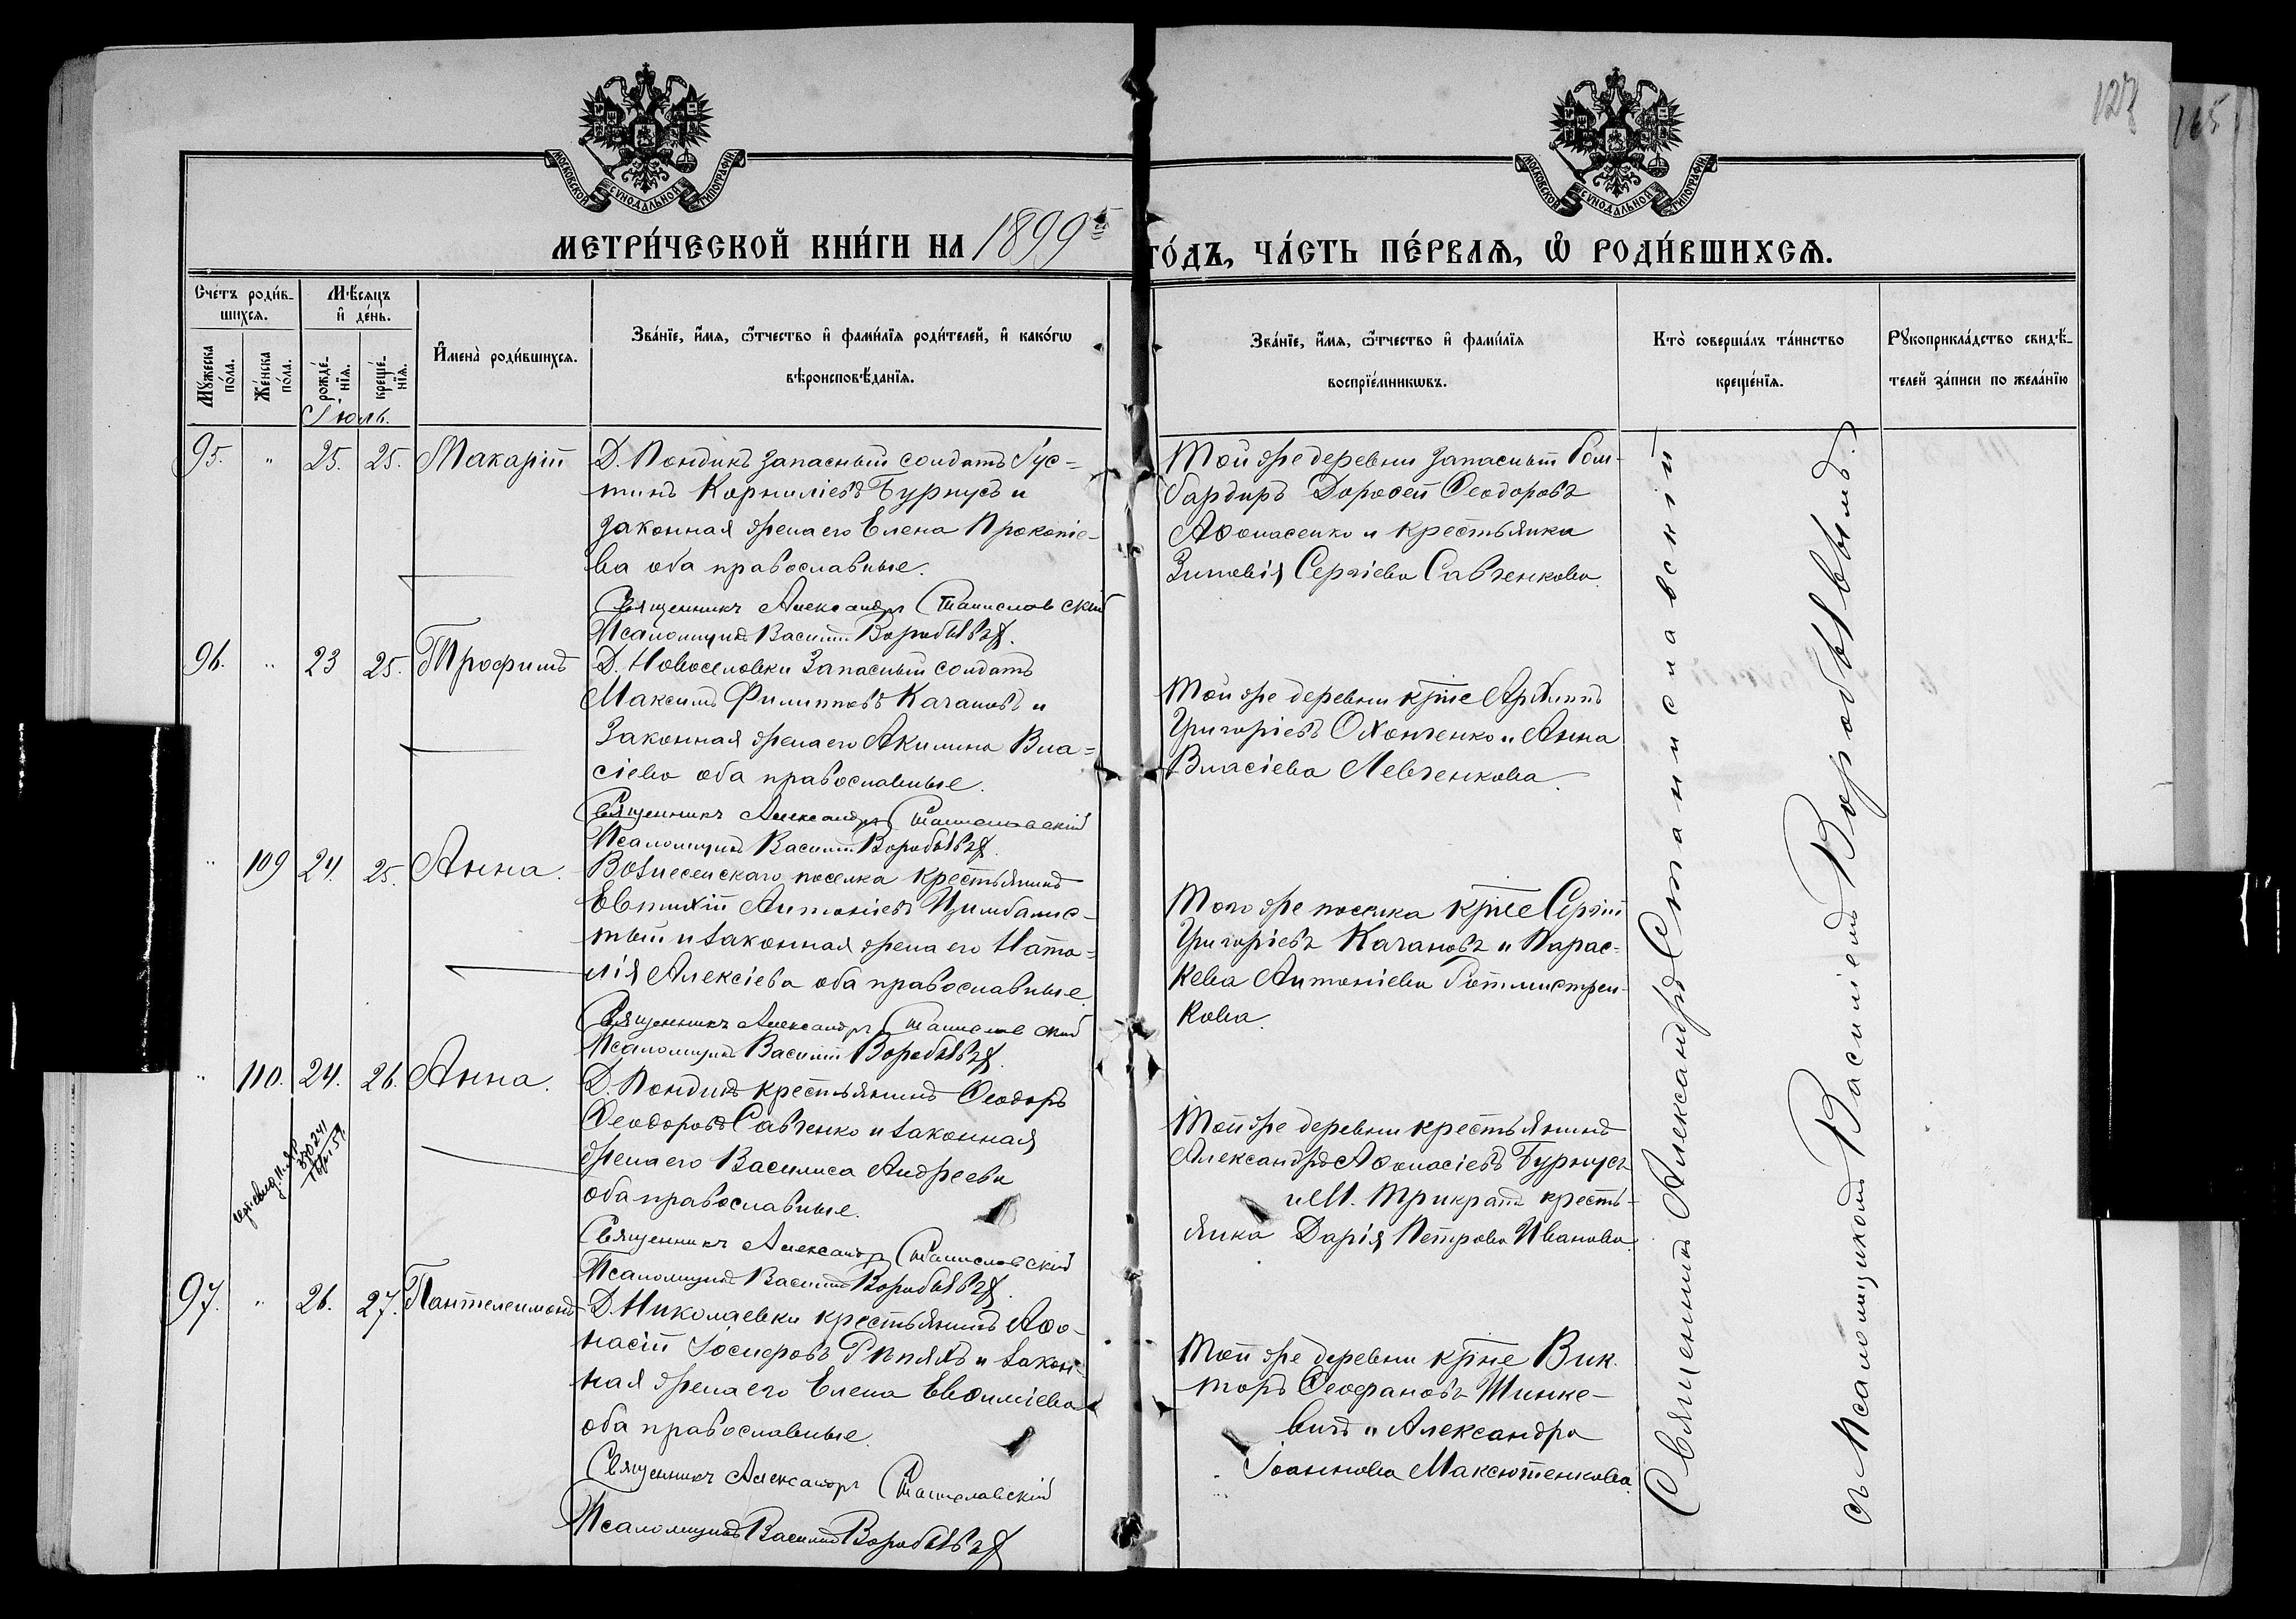 127
165
МОСКОВСКОЙ СѴНОДАЛЬНОЙ ТИПОГРАФІИ
МОСКОВСКОЙ СѴНОДАЛЬНОЙ ТИПОГРАФІИ
МЕТРИ́ЧЕСКОЙ КНИ́ГИ НА 1899 ГО́ДЪ, ЧА́СТЬ ПЕ́РВАѦ, Ѡ҆ РОДИ́ВШИХСѦ.
Сче́тъ роди́в-
шихся.
Мꙋ́жеска
по́ла.
Же́нска
по́ла.
Мѣ́сяцъ
и҆ де́нь.
рожде́-
нїя.
креще́-
нїя.
И҆мена̀ роди́вшихся.
Зва́нїе, и҆́мя, ѻ҆́тчество и҆ фами́лїя роди́телей, и҆ како́гѡ
вѣроисповѣ́данїя.
Зва́нїе, и҆́мя, ѻ҆́тчество и҆ фами́лїя
воспрїе́мникѡвъ.
Кто̀ соверша́лъ та́инство
креще́нїя.
Рꙋкоприкла́дство свидѣ́-
телей за́писи по жела́нїю
Іюль.
95. " 25. 25. Макарій
Д. Пондикъ запасный солдатъ Іус-
тинъ Корниліевъ Бурнусъ и
законная жена его Елена Прокопіе-
ва оба православные.
Священникъ Александръ Станиславскій
Псаломщикъ Василій Воробьевъ
Той же деревни запасный Бом-
бардиръ Дороѳей Ѳеодоровъ
Аѳонасенко и крестьянка
Зиновія Сергіева Савченкова.
96. " 23 25. Трофимъ
Д. Новоселовки Запасный солдатъ
Максимъ Филипповъ Качановъ и
Законная жена его Акилина Вла-
сіева оба православные.
Священникъ Александръ Станиславскій
Псаломщикъ Василій Воробьевъ
Той же деревни кр̃не Архипъ
Григоріевъ Охонченко и Анна
Власіева Левченкова.
" 109 24. 25. Анна.
Вознесенскаго поселка крестьянинъ
Евтихій Антоніевъ Цимбалис-
тый и законная жена его Ната-
лія Алексіева оба православные.
Священникъ Александръ Станиславскій
Псаломщикъ Василій Воробьевъ
Того же поселка кр̃не Сергій
Григоріевъ Качановъ и Парас-
кева Антоніева Ротмистрен-
кова.
" 110. 24. 26. Анна.
Д. Пондикъ крестьянинъ Ѳеодоръ
Ѳеодоровъ Савченко и законная
жена его Василиса Андреева
оба православные.
Священникъ Александръ Станиславскій
Псаломщикъ Василій Воробьевъ
Той же деревни крестьянинъ
Александръ Аѳонасіевъ Бурнусъ
и М. Трикратъ кресть-
янка Дарія Петрова Иванова.
97. " 26. 27. Пантелеимонъ
Д. Николаевки крестьянинъ Аѳо-
насій Іосифовъ Рѣпяхъ и закон-
ная жена его Елена Евѳиміева
оба православные.
Священникъ Александръ Станиславскій
Псаломщикъ Василій Воробьевъ
Той же деревни кр̃не Вик-
торъ Ѳеофановъ Шинке-
вичъ и Александра
Іоаннова Максютенкова.
Священникъ Александръ Станиславскій
съ Псаломщикомъ Василіемъ Воробьевымъ.